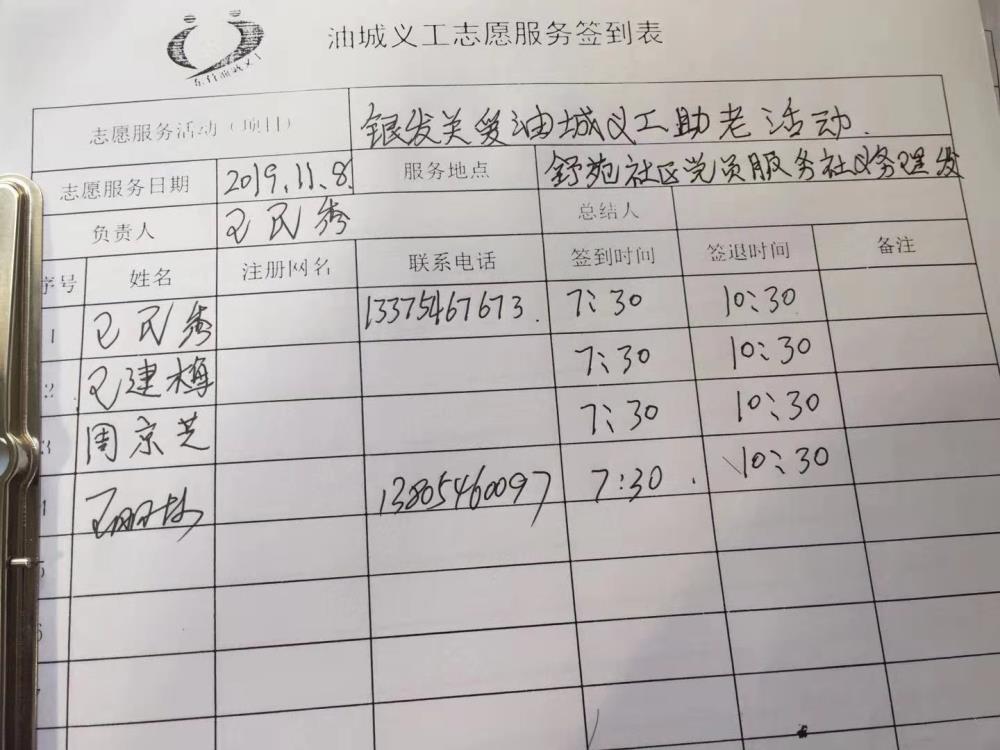 油城义工志愿服务签到表
志愿服务活动（项目） 银发关爱油城义工助老活动.
志愿服务日期 2019.11.8. 服务地点 舒苑社区党员服务社义务理发
负责人 王民秀 总结人
序号 姓名 注册网名 联系电话 签到时间 签退时间 备注
1 王民秀 13375467673. 7:30 10:30
2 王建梅 7:30 10:30
3 周京芝 7:30 10:30
4 13805460097 7:30 10:30
5
6
7